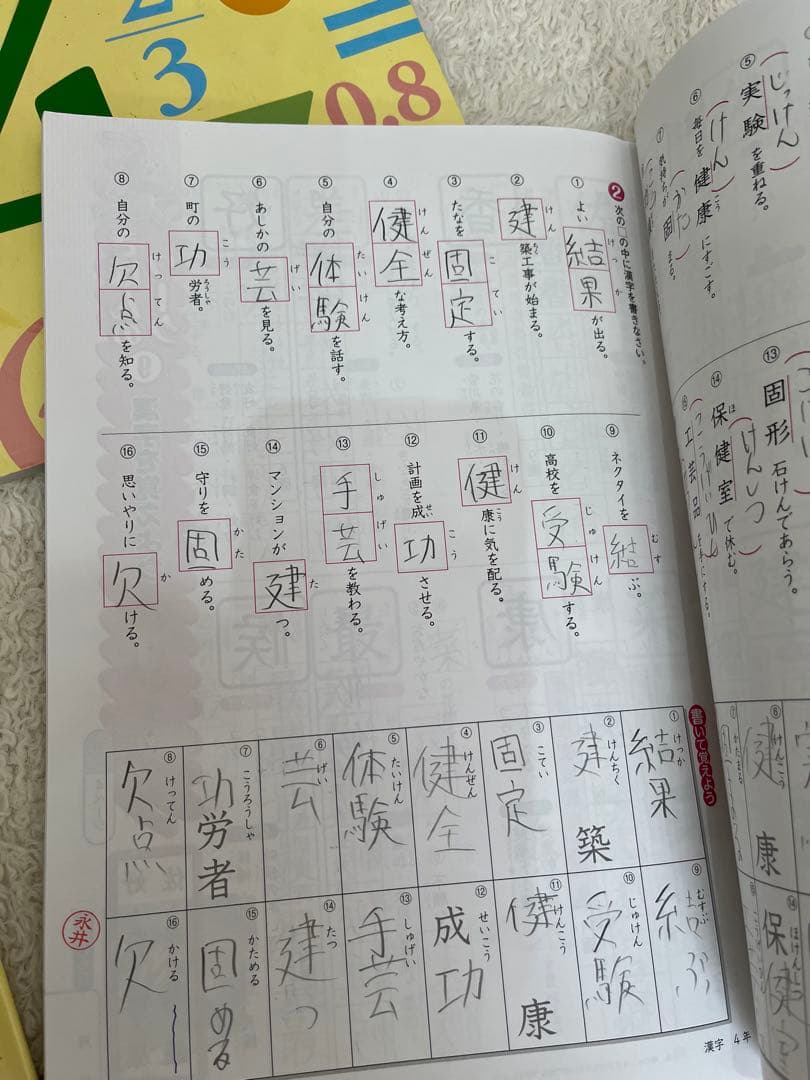 2/3
=
0.8
⑤ 実験を重ねる。
(じっけん)
⑥ 毎日を健康にすごす。
(けん)こう
⑦ 気持ちが固まる。
⑬ 固形石けんであらう。
⑭ 保健室で休む。
ほ(けんしつ)
⑮ 工芸品を手にする。
❷ 次の□の中に漢字を書きなさい。
① よい結果が出る。
けっか
② 建築工事が始まる。
けんちく
③ たなを固定する。
こてい
④ 健全な考え方。
けんぜん
⑤ 自分の体験を話す。
たいけん
⑥ あしかの芸を見る。
げい
⑦ 町の功労者。
こうろうしゃ
⑧ 自分の欠点を知る。
けってん
⑨ ネクタイを結ぶ。
むす
⑩ 高校を受験する。
じゅけん
⑪ 健康に気を配る。
けんこう
⑫ 計画を成功させる。
せいこう
⑬ 手芸を教わる。
しゅげい
⑭ マンションが建つ。
た
⑮ 守りを固める。
かた
⑯ 思いやりに欠ける。
か
書いて覚えよう
① けっか 結果
② けんちく 建築
③ こてい 固定
④ けんぜん 健全
⑤ たいけん 体験
⑥ げい 芸
⑦ こうろうしゃ 功労者
⑧ けってん 欠点
⑨ むすぶ 結ぶ
⑩ じゅけん 受験
⑪ けんこう 健康
⑫ せいこう 成功
⑬ しゅげい 手芸
⑭ たつ 建つ
⑮ かためる 固める
⑯ かける 欠
⑥ けんこう 健康
⑦ かたまる
⑭ 保健
永井
漢字 4年